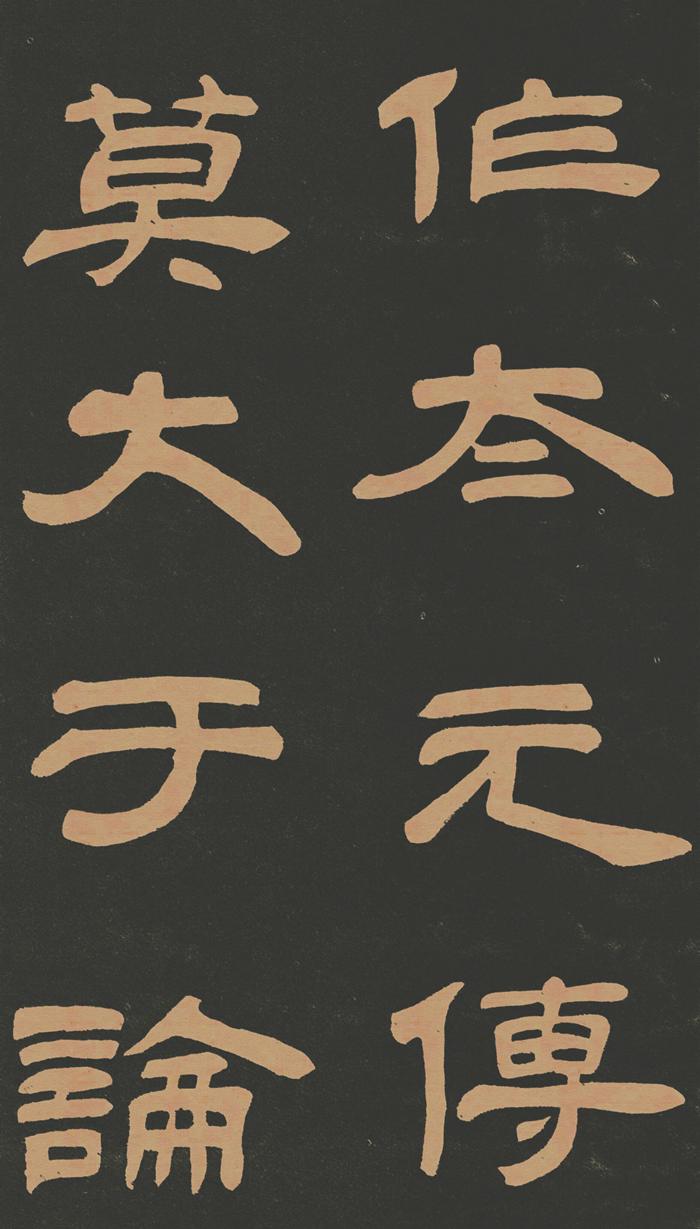 作太元傳
莫大于論